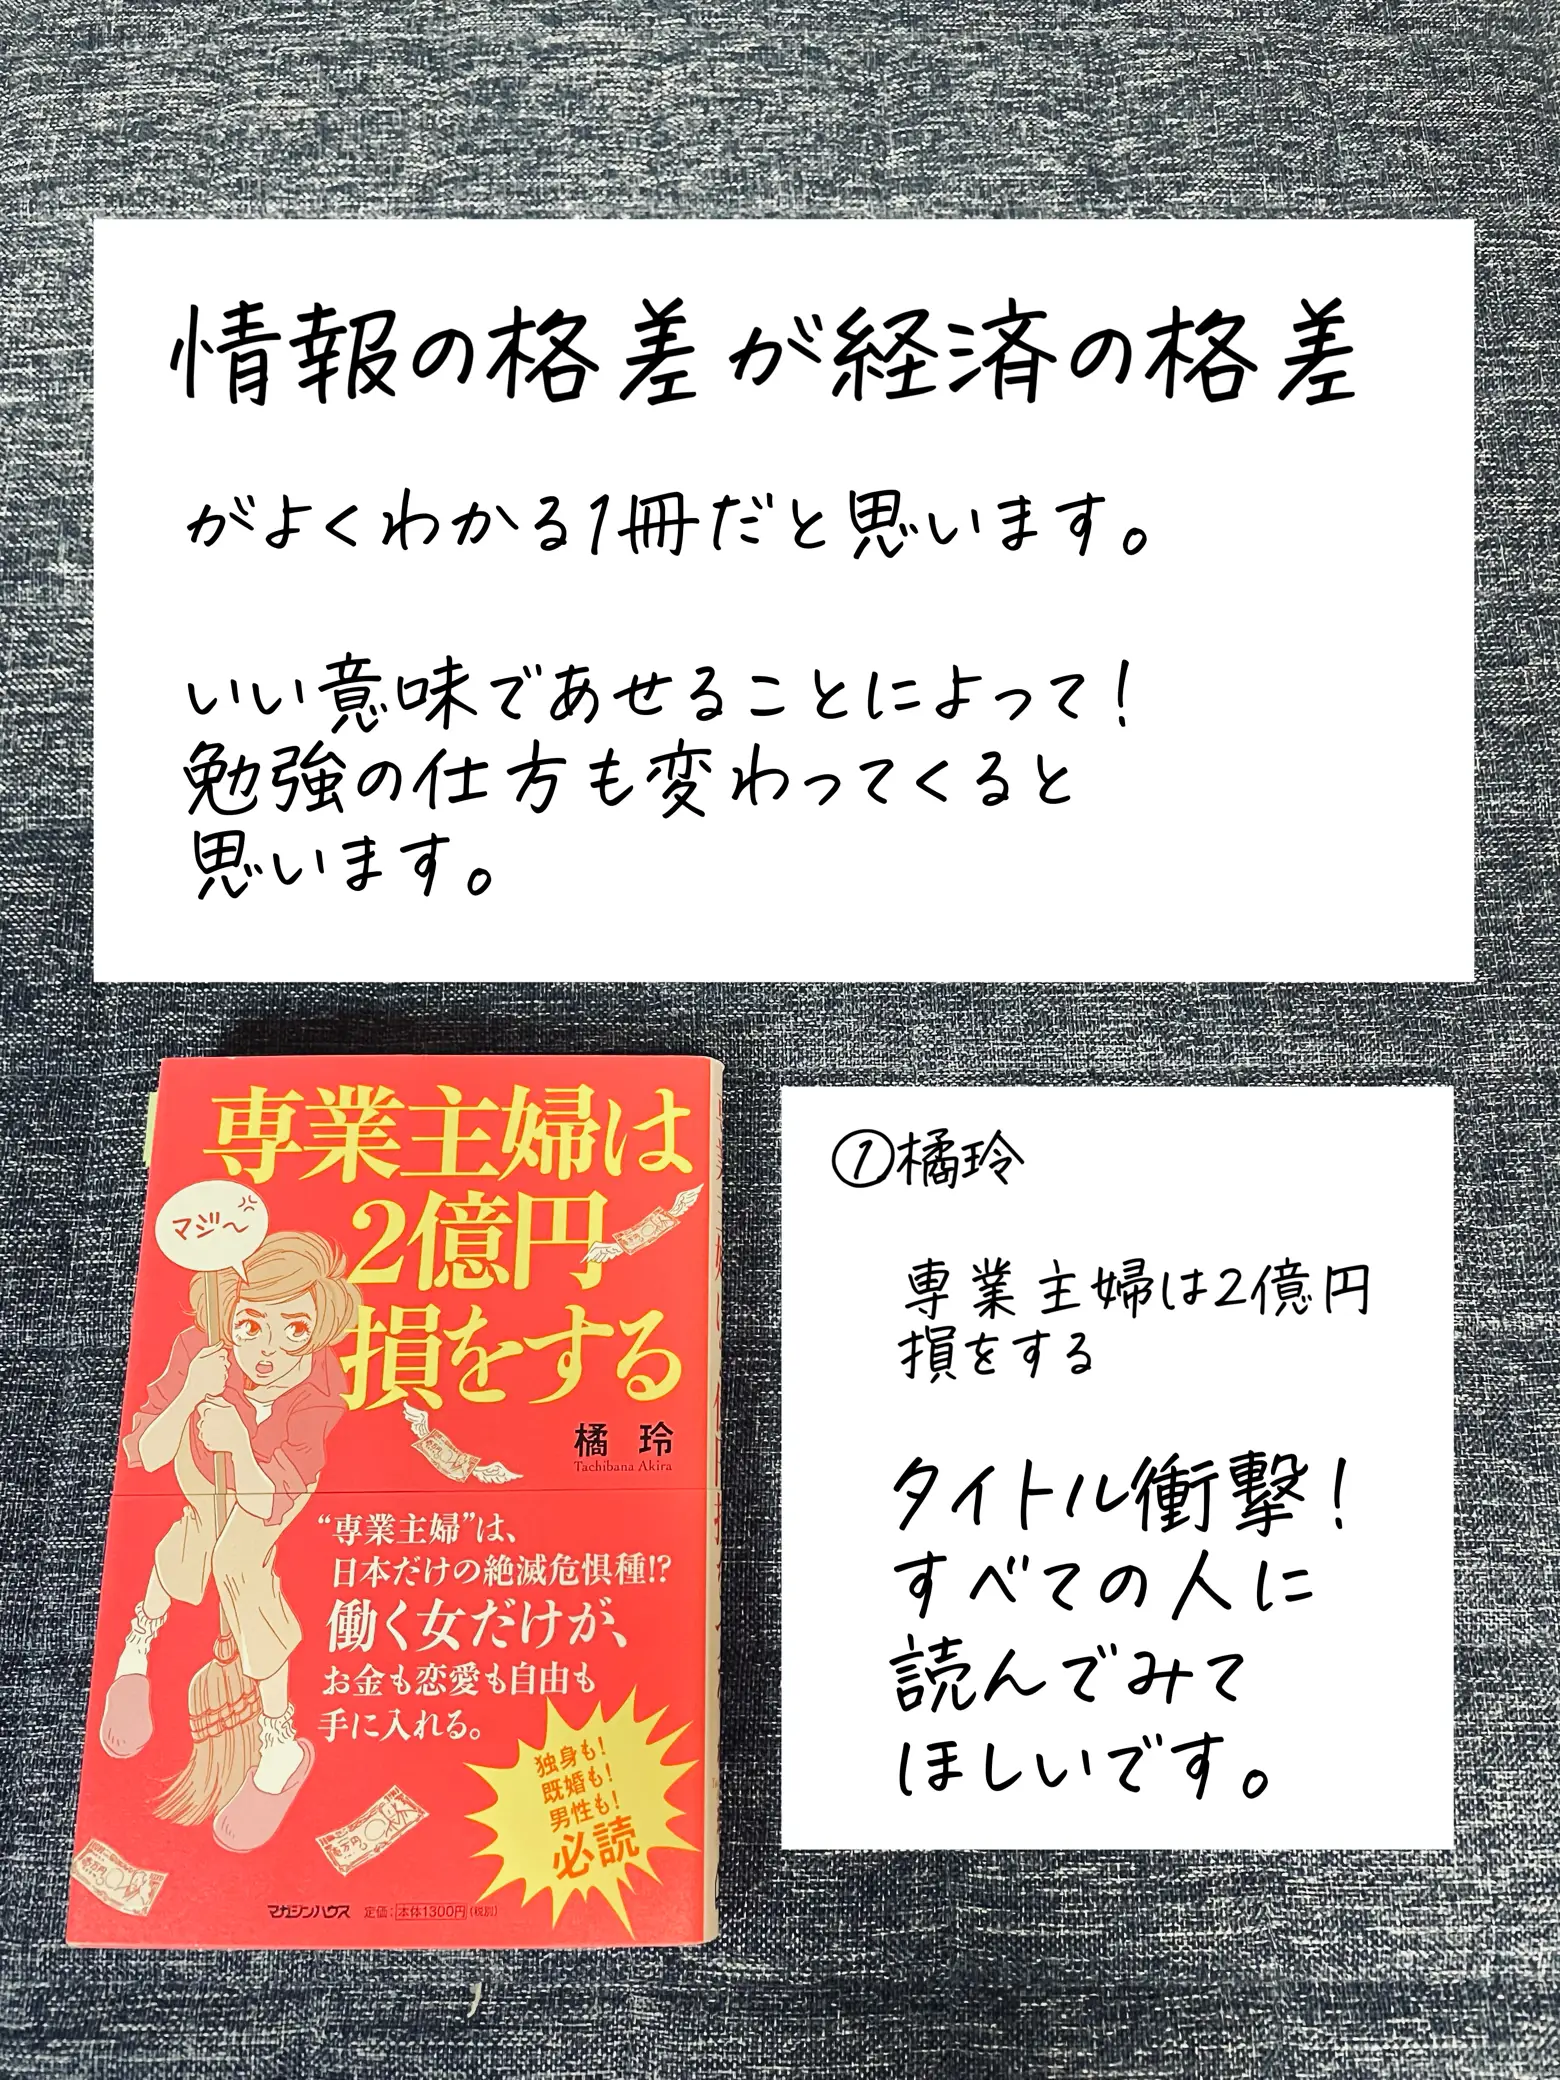 情報の格差が経済の格差
がよくわかる1冊だと思います。
いい意味であせることによって!
勉強の仕方も変わってくると
思います。
専業主婦は
2億円
損をする
マジ〜
橘 玲
Tachibana Akira
“専業主婦”は、
日本だけの絶滅危惧種!?
働く女だけが、
お金も恋愛も自由も
手に入れる。
独身も!
既婚も!
男性も!
必読
マガジンハウス 定価:本体1300円(税別)
①橘玲
専業主婦は2億円
損をする
タイトル衝撃!
すべての人に
読んでみて
ほしいです。